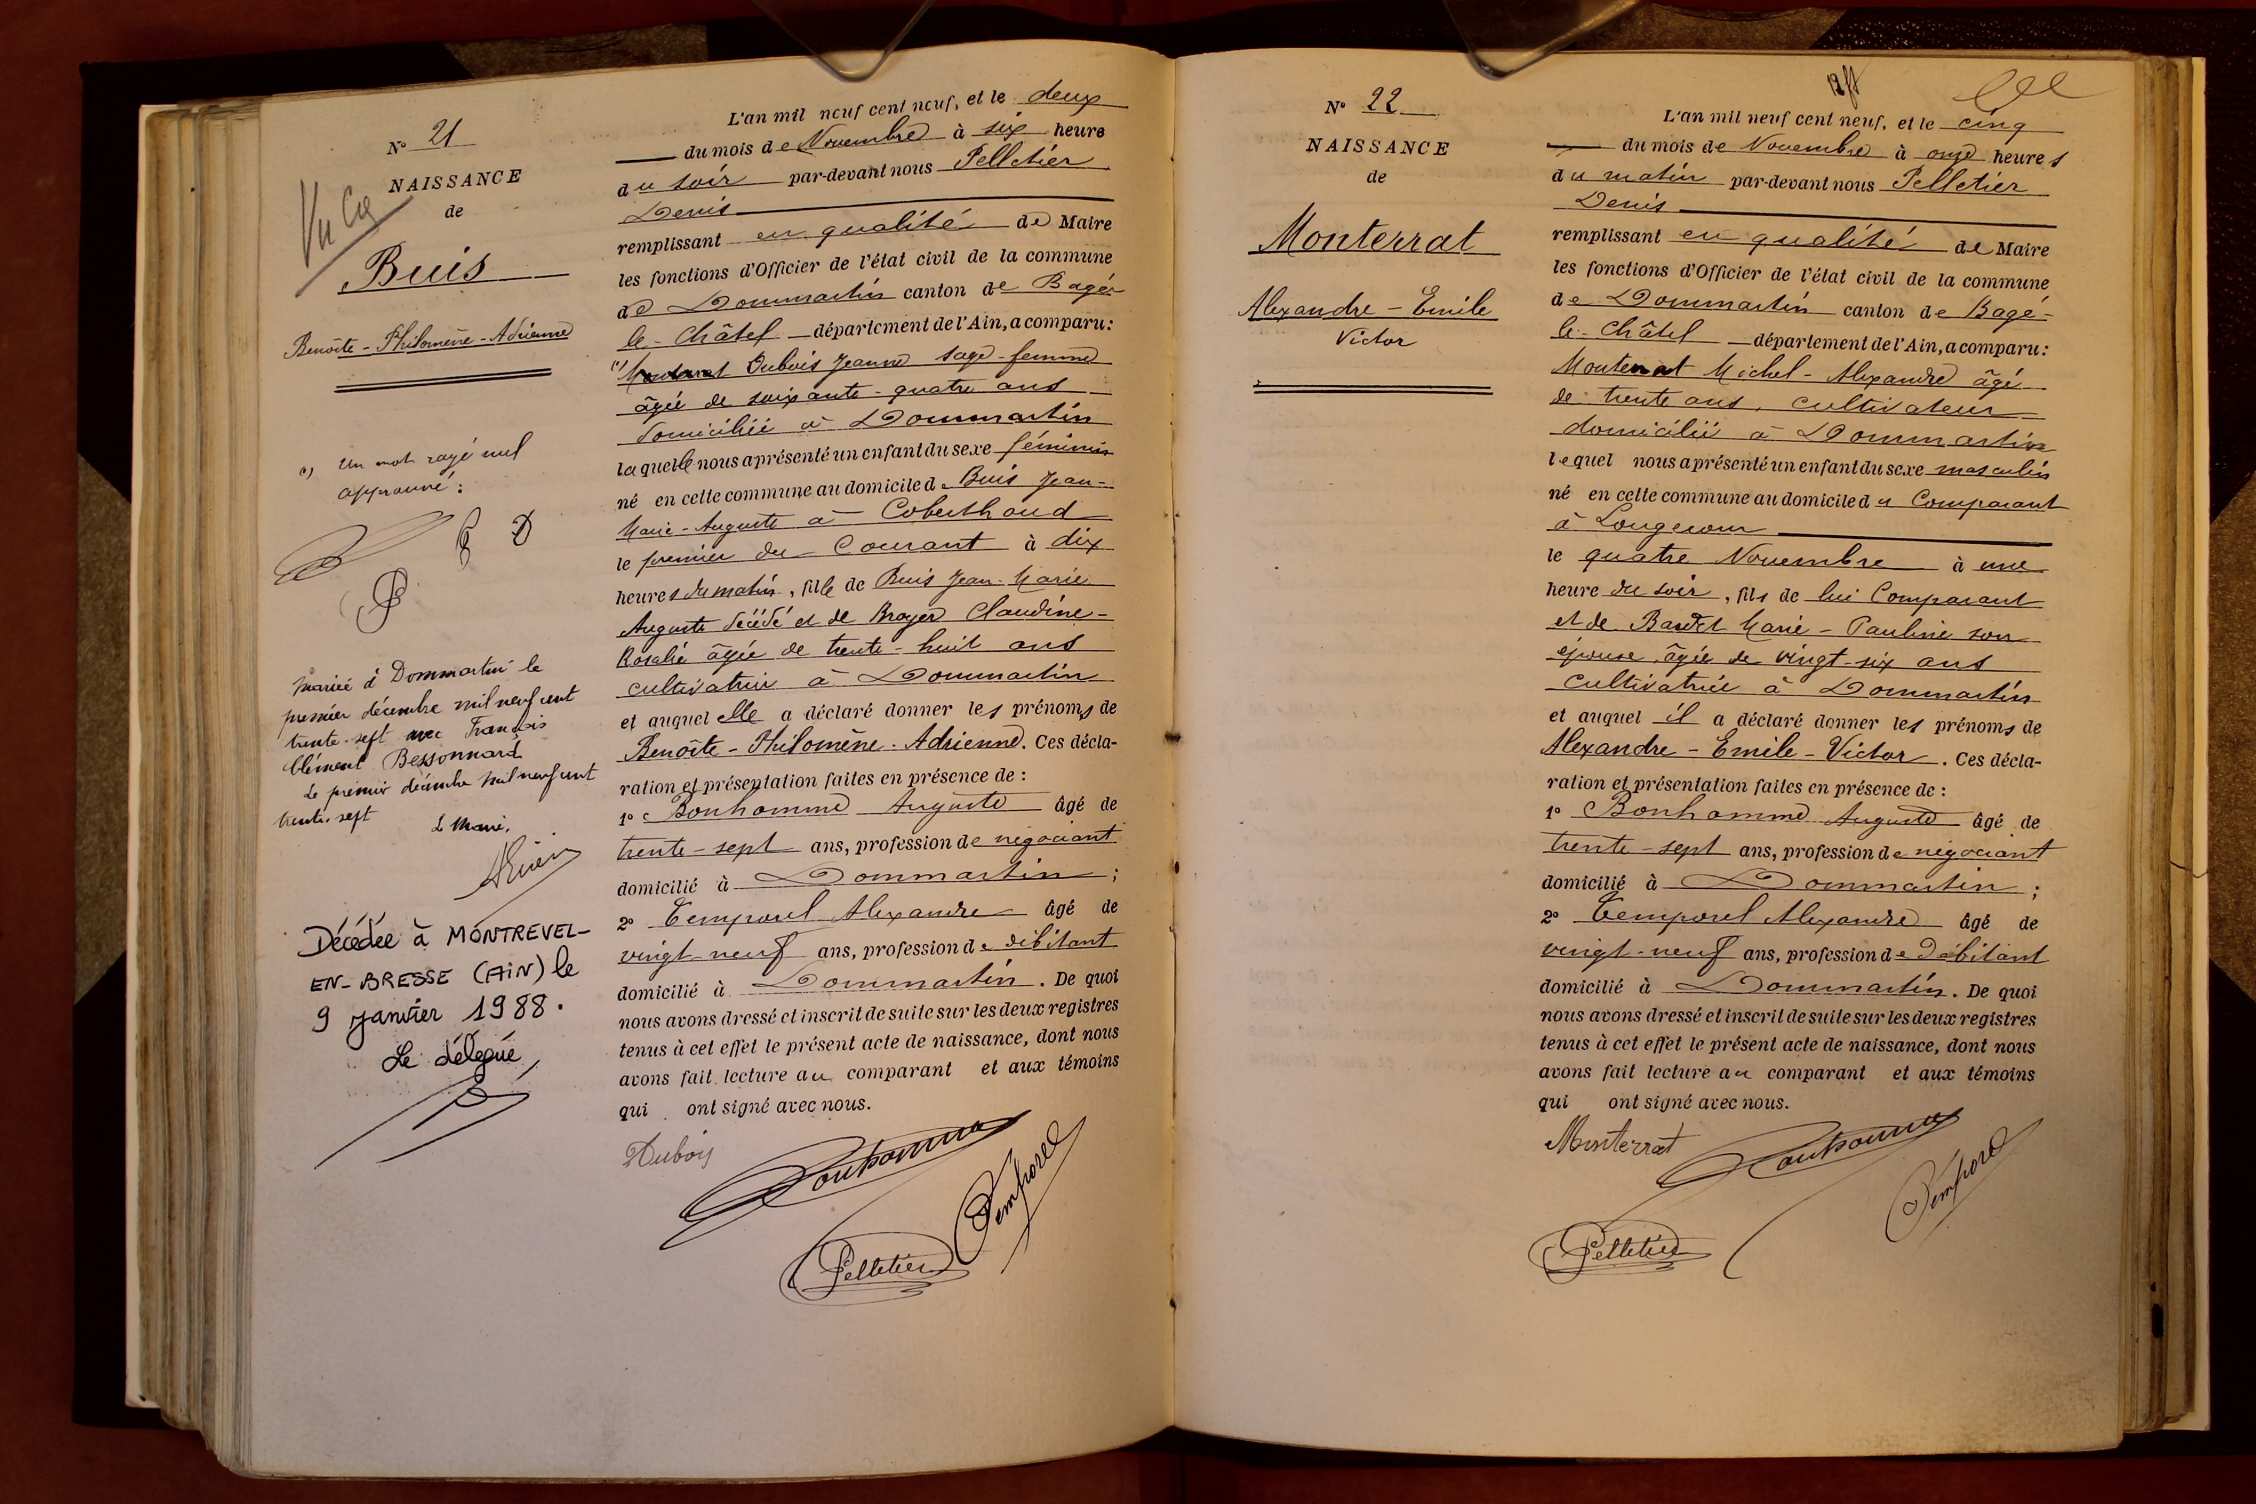 N° 21
NAISSANCE
de
Buis
Benoîte - Philomène - Adrienne
(1) Un mot rayé nul
approuvé :
D
Mariée à Dommartin le
premier décembre mil neuf cent
trente-sept avec François
Clément Bessonnard
Le premier décembre mil neuf cent
trente-sept Le Maire,
Décédée à MONTREVEL-
EN-BRESSE (AIN) le
9 janvier 1988.
Le délégué,
L'an mil neuf cent neuf, et le deux
du mois de Novembre à six heure
du soir par-devant nous Pelletier
Denis
remplissant en qualité de Maire
les fonctions d'Officier de l'état civil de la commune
de Dommartin canton de Bagé-
le-Châtel département de l'Ain, a comparu :
(1) Dubois Jeanne sage-femme
âgée de soixante-quatre ans
domiciliée à Dommartin
laquelle nous a présenté un enfant du sexe féminin
né en cette commune au domicile de Buis Jean-
Marie-Auguste à Coberthoud
le premier du Courant à dix
heures du matin, fille de Buis Jean-Marie
Auguste décédé et de Broyer Claudine-
Rosalie âgée de trente-huit ans
cultivatrice à Dommartin
et auquel elle a déclaré donner les prénoms de
Benoîte - Philomène - Adrienne. Ces décla-
ration et présentation faites en présence de :
1° Bonhomme Auguste âgé de
trente-sept ans, profession de négociant
domicilié à Dommartin ;
2° Temporel Alexandre âgé de
vingt-neuf ans, profession de débitant
domicilié à Dommartin. De quoi
nous avons dressé et inscrit de suite sur les deux registres
tenus à cet effet le présent acte de naissance, dont nous
avons fait lecture au comparant et aux témoins
qui ont signé avec nous.
Dubois Bonhomme
Temporel
Pelletier
N° 22
NAISSANCE
de
Monterrat
Alexandre - Emile
Victor
L'an mil neuf cent neuf, et le cinq
du mois de Novembre à onze heures
du matin par-devant nous Pelletier
Denis
remplissant en qualité de Maire
les fonctions d'Officier de l'état civil de la commune
de Dommartin canton de Bagé-
le-Châtel département de l'Ain, a comparu :
Monterrat Michel-Alexandre âgé
de trente ans, cultivateur
domicilié à Dommartin
lequel nous a présenté un enfant du sexe masculin
né en cette commune au domicile du Comparant
à Longecour
le quatre Novembre à une
heure du soir, fils de lui Comparant
et de Bardet Marie-Pauline son
épouse âgée de vingt-six ans
cultivatrice à Dommartin
et auquel il a déclaré donner les prénoms de
Alexandre - Emile - Victor. Ces décla-
ration et présentation faites en présence de :
1° Bonhomme Auguste âgé de
trente-sept ans, profession de négociant
domicilié à Dommartin ;
2° Temporel Alexandre âgé de
vingt-neuf ans, profession de Débitant
domicilié à Dommartin. De quoi
nous avons dressé et inscrit de suite sur les deux registres
tenus à cet effet le présent acte de naissance, dont nous
avons fait lecture au comparant et aux témoins
qui ont signé avec nous.
Monterrat Bonhomme
Temporel
Pelletier